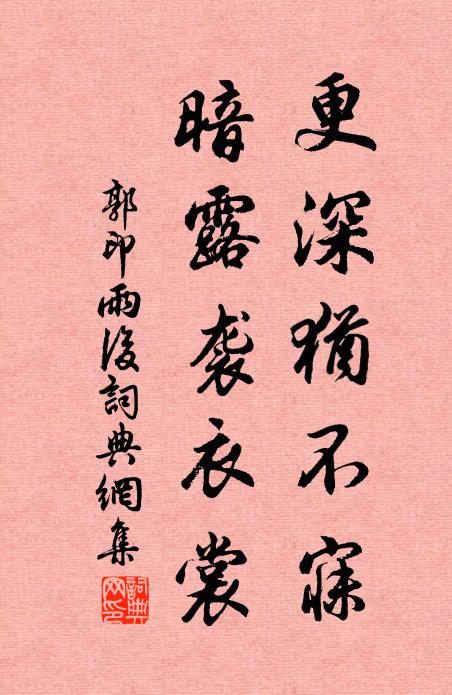 更深猶不寐
暗露袭衣裳
郭印雨後詞典網集
詞典網印